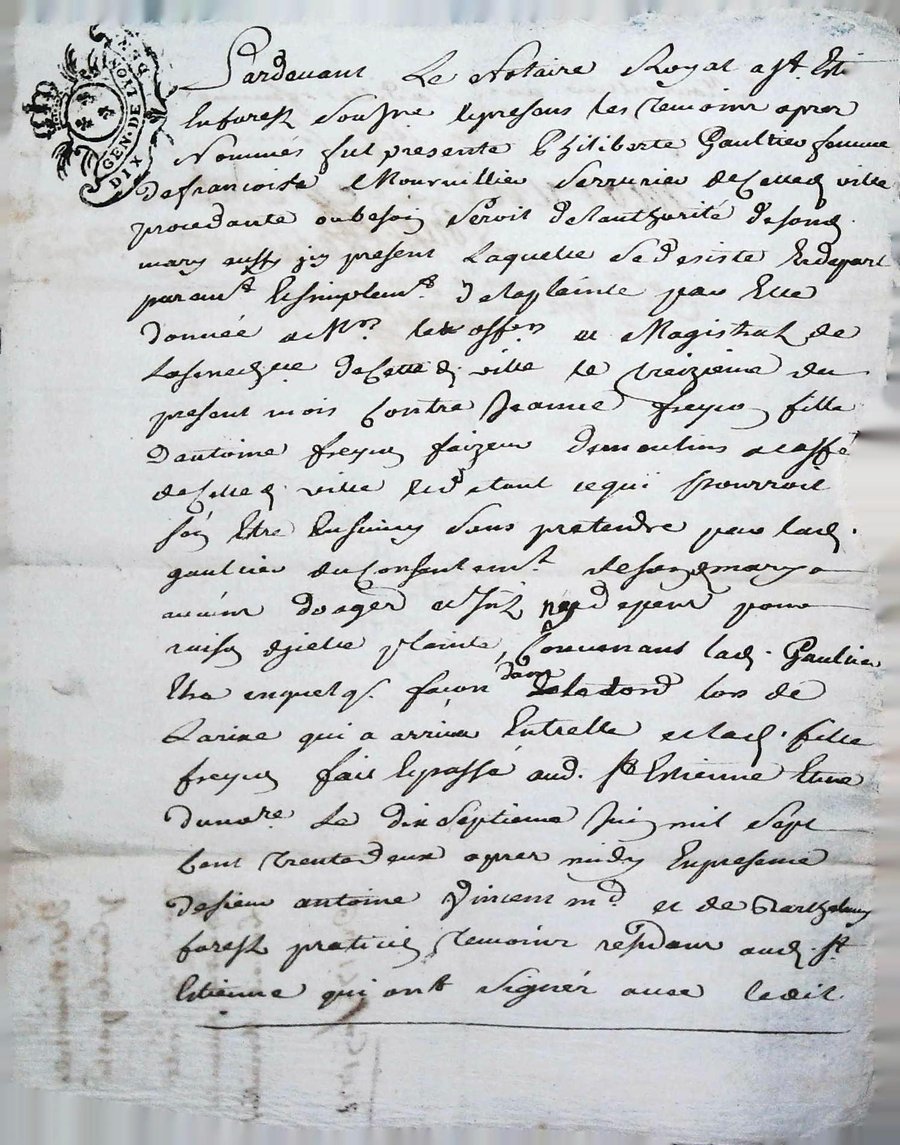 GEN. DE LION DEN
DIX
Pardevant Le Notaire Royal a St. Esti
En forest soussne. Et presens les temoins apres
Nommés fut presente Philiberte Gaultier femme
de francoise Mourvillier Serrurier de Cette d. ville
procedante ou besoin seroit de lauthorité de son d.
mary aussy icy present Laquelle se desiste Et depart
puremt. Et simplemt. de la plainte par Elle
donnée a Mrs. les offrs. et Magistrat de
La senechée. de Cette d. ville le treizieme du
present mois Contre Jeanne freycon fille
dantoine freycon faizeur de moulins a caffé
de Cette d. ville et de tout ce qui pourroit
sen Etre Ensuivy sans pretendre par lad.
gaultier du Consentemt. de son d. mary
aucuns domages interets ny depens pour
raison dicelle plainte, Convenant lad. Gaultier
Etre en quelqe. facon dans lors de
La rixe qui a arrivé Entrelle et lad. fille
freycon fait Et passé aud. St Estienne Etude
du nore. Le dix Septieme Juin mil Sept
Cent trente deux apres midy En presence
de sieur antoine Vincent md. et de Barthelemy
forest praticien temoins residans aud. St.
Estienne qui ont signér avec ledit